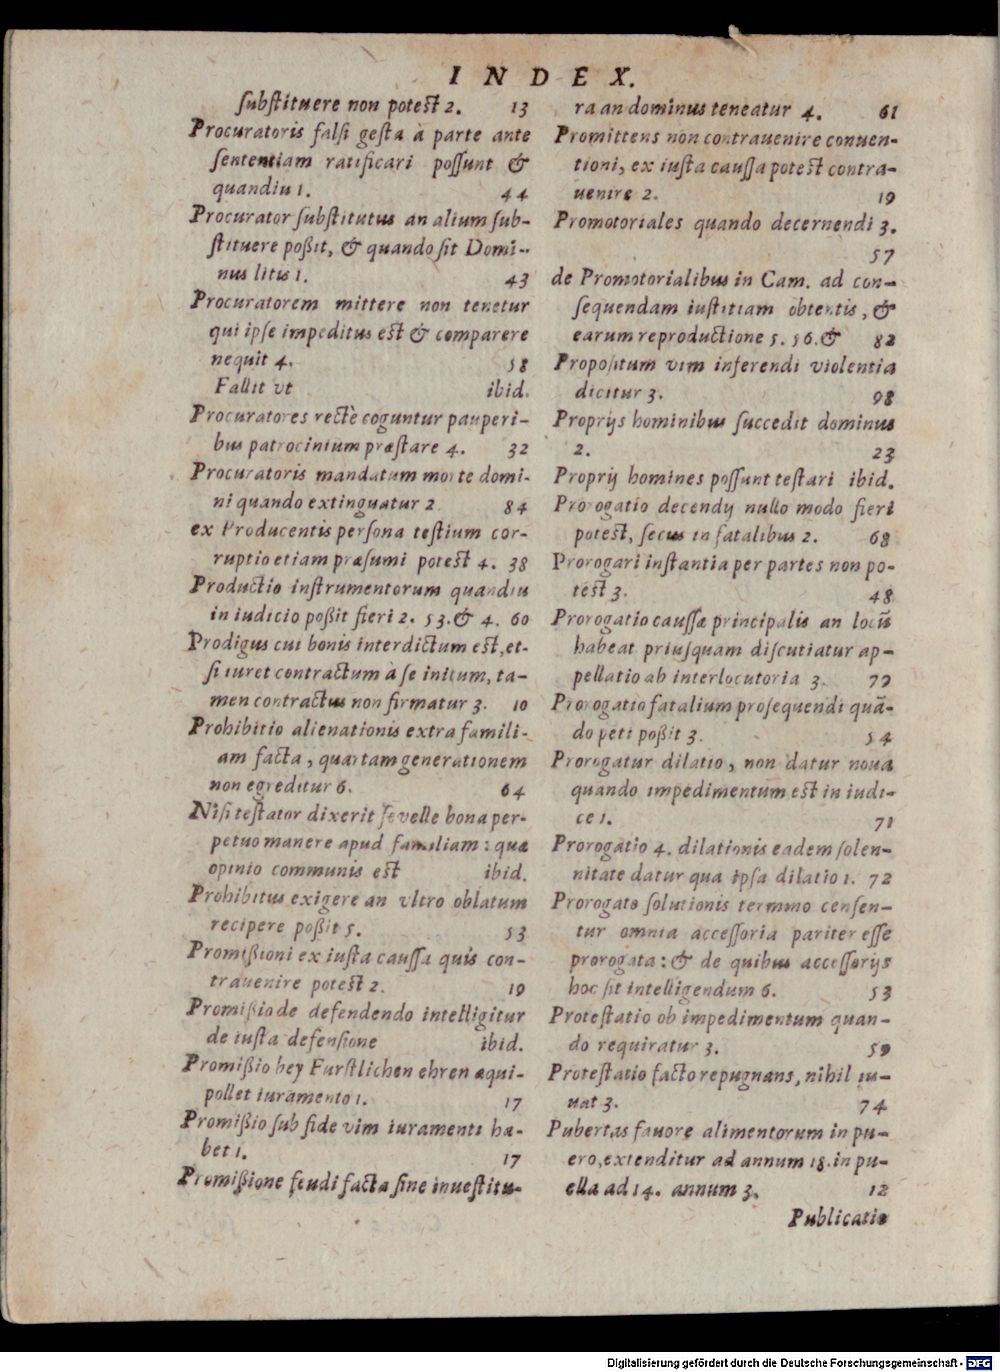 INDEX.
ſubſtituere non poteſt 2. 13
Procuratoris falſi geſta à parte ante
ſententiam ratificari poſſunt &
quandiu 1. 44
Procurator ſubſtitutus an alium ſub-
ſtituere poßit, & quando ſit Domi-
nus litis 1. 43
Procuratorem mittere non tenetur
qui ipſe impeditus eſt & comparere
nequit 4. 58
Fallit vt ibid.
Procuratores rectè coguntur pauperi-
bus patrocinium præſtare 4. 32
Procuratoris mandatum morte domi-
ni quando extinguatur 2 84
ex Producentis perſona teſtium cor-
ruptio etiam præſumi poteſt 4. 38
Productio inſtrumentorum quandiu
in iudicio poßit fieri 2. 53. & 4. 60
Prodigus cui bonis interdictum eſt, et-
ſi iuret contractum à ſe initum, ta-
men contractus non firmatur 3. 10
Prohibitio alienationis extra famili-
am facta, quartam generationem
non egreditur 6. 64
Niſi teſtator dixerit ſe velle bona per-
petuo manere apud familiam: quæ
opinio communis eſt ibid.
Prohibitus exigere an vltro oblatum
recipere poßit 5. 53
Promißioni ex iuſta cauſſa quis con-
trauenire poteſt 2. 19
Promißio de defendendo intelligitur
de iuſta defenſione ibid.
Promißio bey Furſtlichen ehren æqui-
pollet iuramento 1. 17
Promißio ſub fide vim iuramenti ha-
bet 1. 17
Promißione feudi facta ſine inueſtitu-
ra an dominus teneatur 4. 61
Promittens non contrauenire conuen-
tioni, ex iuſta cauſſa poteſt contra-
uenire 2. 19
Promotoriales quando decernendi 3.
57
de Promotorialibus in Cam. ad con-
ſequendam iuſtitiam obtentis, &
earum reproductione 5. 56. & 82
Propoſitum vim inferendi violentia
dicitur 3. 98
Proprijs hominibus ſuccedit dominus
2. 23
Proprij homines poſſunt teſtari ibid.
Prorogatio decendij nullo modo fieri
poteſt, ſecus in fatalibus 2. 68
Prorogari inſtantia per partes non po-
teſt 3. 48
Prorogatio cauſſæ principalis an locũ
habeat priuſquam diſcutiatur ap-
pellatio ab interlocutoria 3. 79
Prorogatio fatalium proſequendi quã-
do peti poßit 3. 54
Prorogatur dilatio, non datur noua
quando impedimentum eſt in iudi-
ce 1. 71
Prorogatio 4. dilationis eadem ſolen-
nitate datur qua ipſa dilatio 1. 72
Prorogato ſolutionis termino cenſen-
tur omnia acceſſoria pariter eſſe
prorogata: & de quibus acceſſorijs
hoc ſit intelligendum 6. 53
Proteſtatio ob impedimentum quan-
do requiratur 3. 59
Proteſtatio facto repugnans, nihil iu-
uat 3. 74
Pubertas fauore alimentorum in pu-
ero, extenditur ad annum 18. in pu-
ella ad 14. annum 3. 12
Publicatio
Digitalisierung gefördert durch die Deutsche Forschungsgemeinschaft - DFG